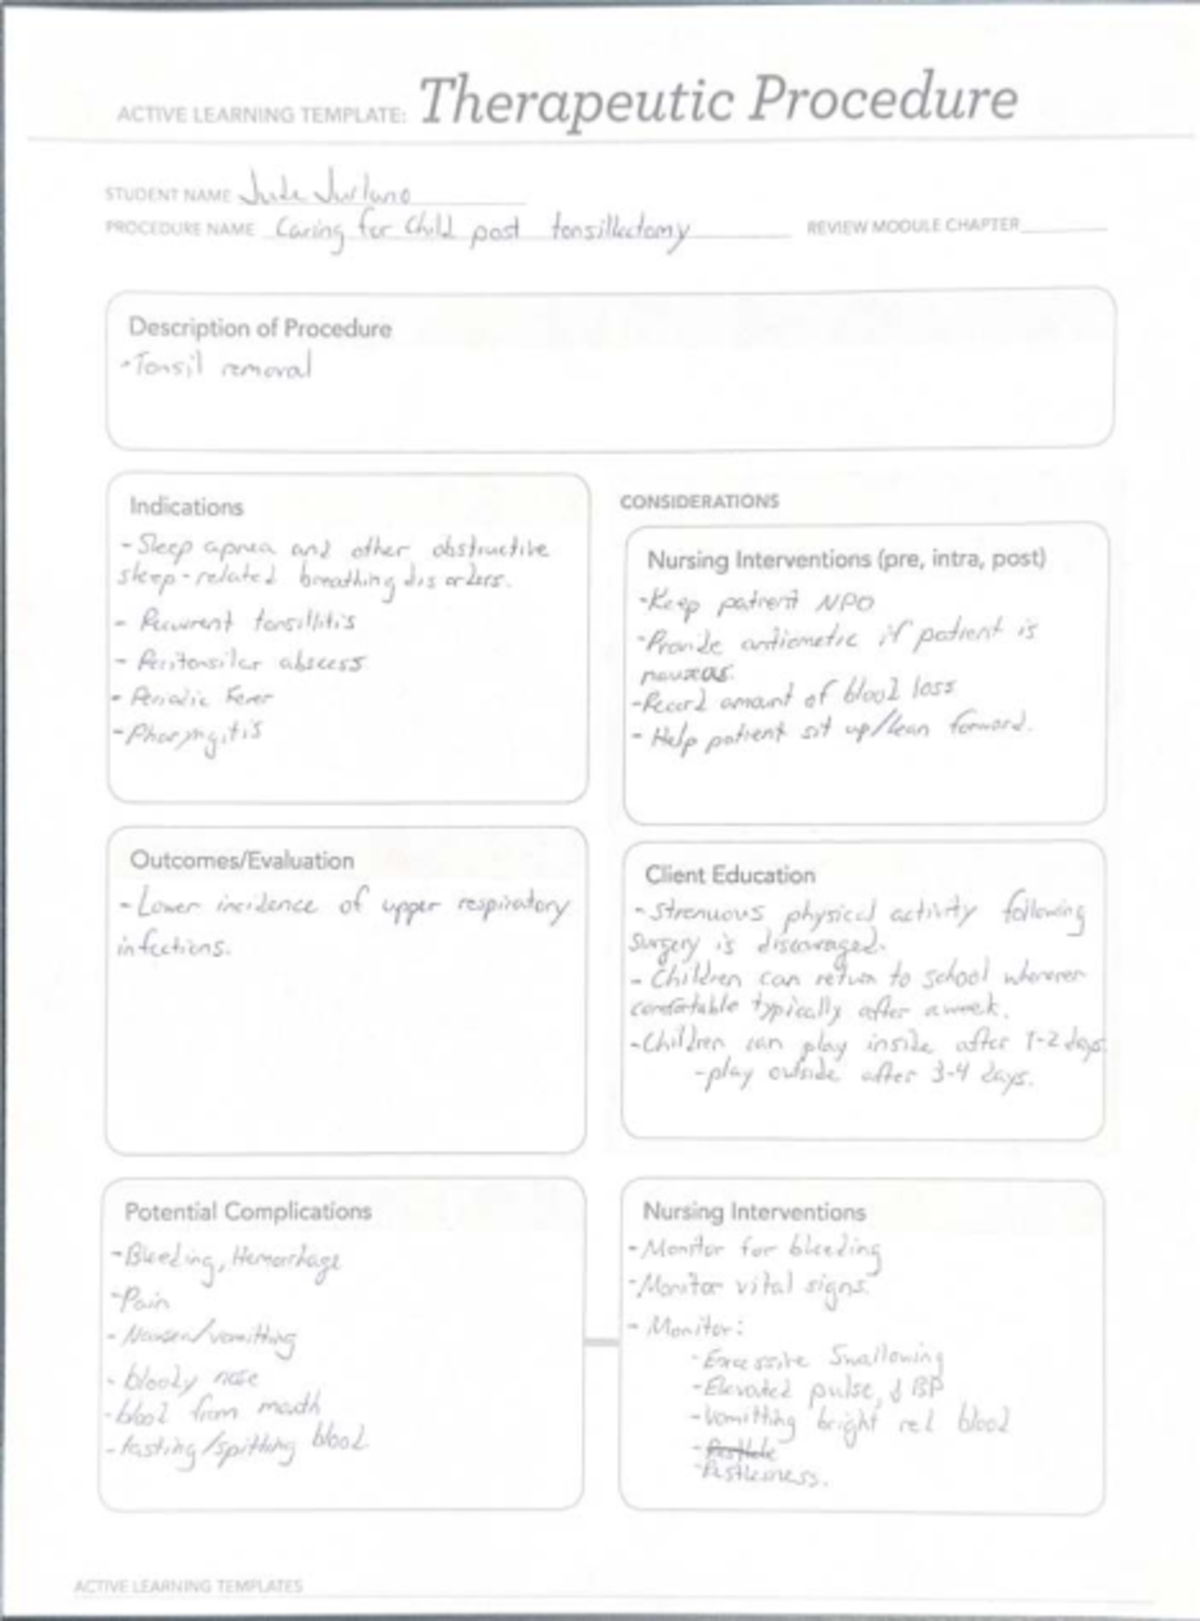 ACTIVE LEARNING TEMPLATE: Therapeutic Procedure
STUDENT NAME Jude
PROCEDURE NAME Caring for Child post tonsillectomy REVIEW MODULE CHAPTER
Description of Procedure
-Tonsil removal
Indications
-Sleep apnea and other obstructive
sleep-related breathing disorders.
- Recurrent tonsillitis
- Peritonsilar abscess
- Periodic Fever
-Pharyngitis
CONSIDERATIONS
Nursing Interventions (pre, intra, post)
-Keep patient NPO
-Provide antiemetic if patient is
-Record amount of blood loss
- Help patient sit up/lean forward.
Outcomes/Evaluation
-Lower incidence of upper respiratory
infections.
Client Education
-Strenuous physical activity following
surgery is discouraged.
- Children can return to school whenever
comfortable typically after a week.
-Children can play inside after 1-2 days
-play outside after 3-4 days.
Potential Complications
-Bleeding, Hemorrhage
-Pain
- Nausea/vomitting
- bloody nose
-blood from mouth
-tasting/spitting blood
Nursing Interventions
-Monitor for bleeding
-Monitor vital signs.
- Monitor:
-Excessive Swallowing
-Elevated pulse, ↓ BP
-Vomitting bright red blood
-Restlessness.
ACTIVE LEARNING TEMPLATES